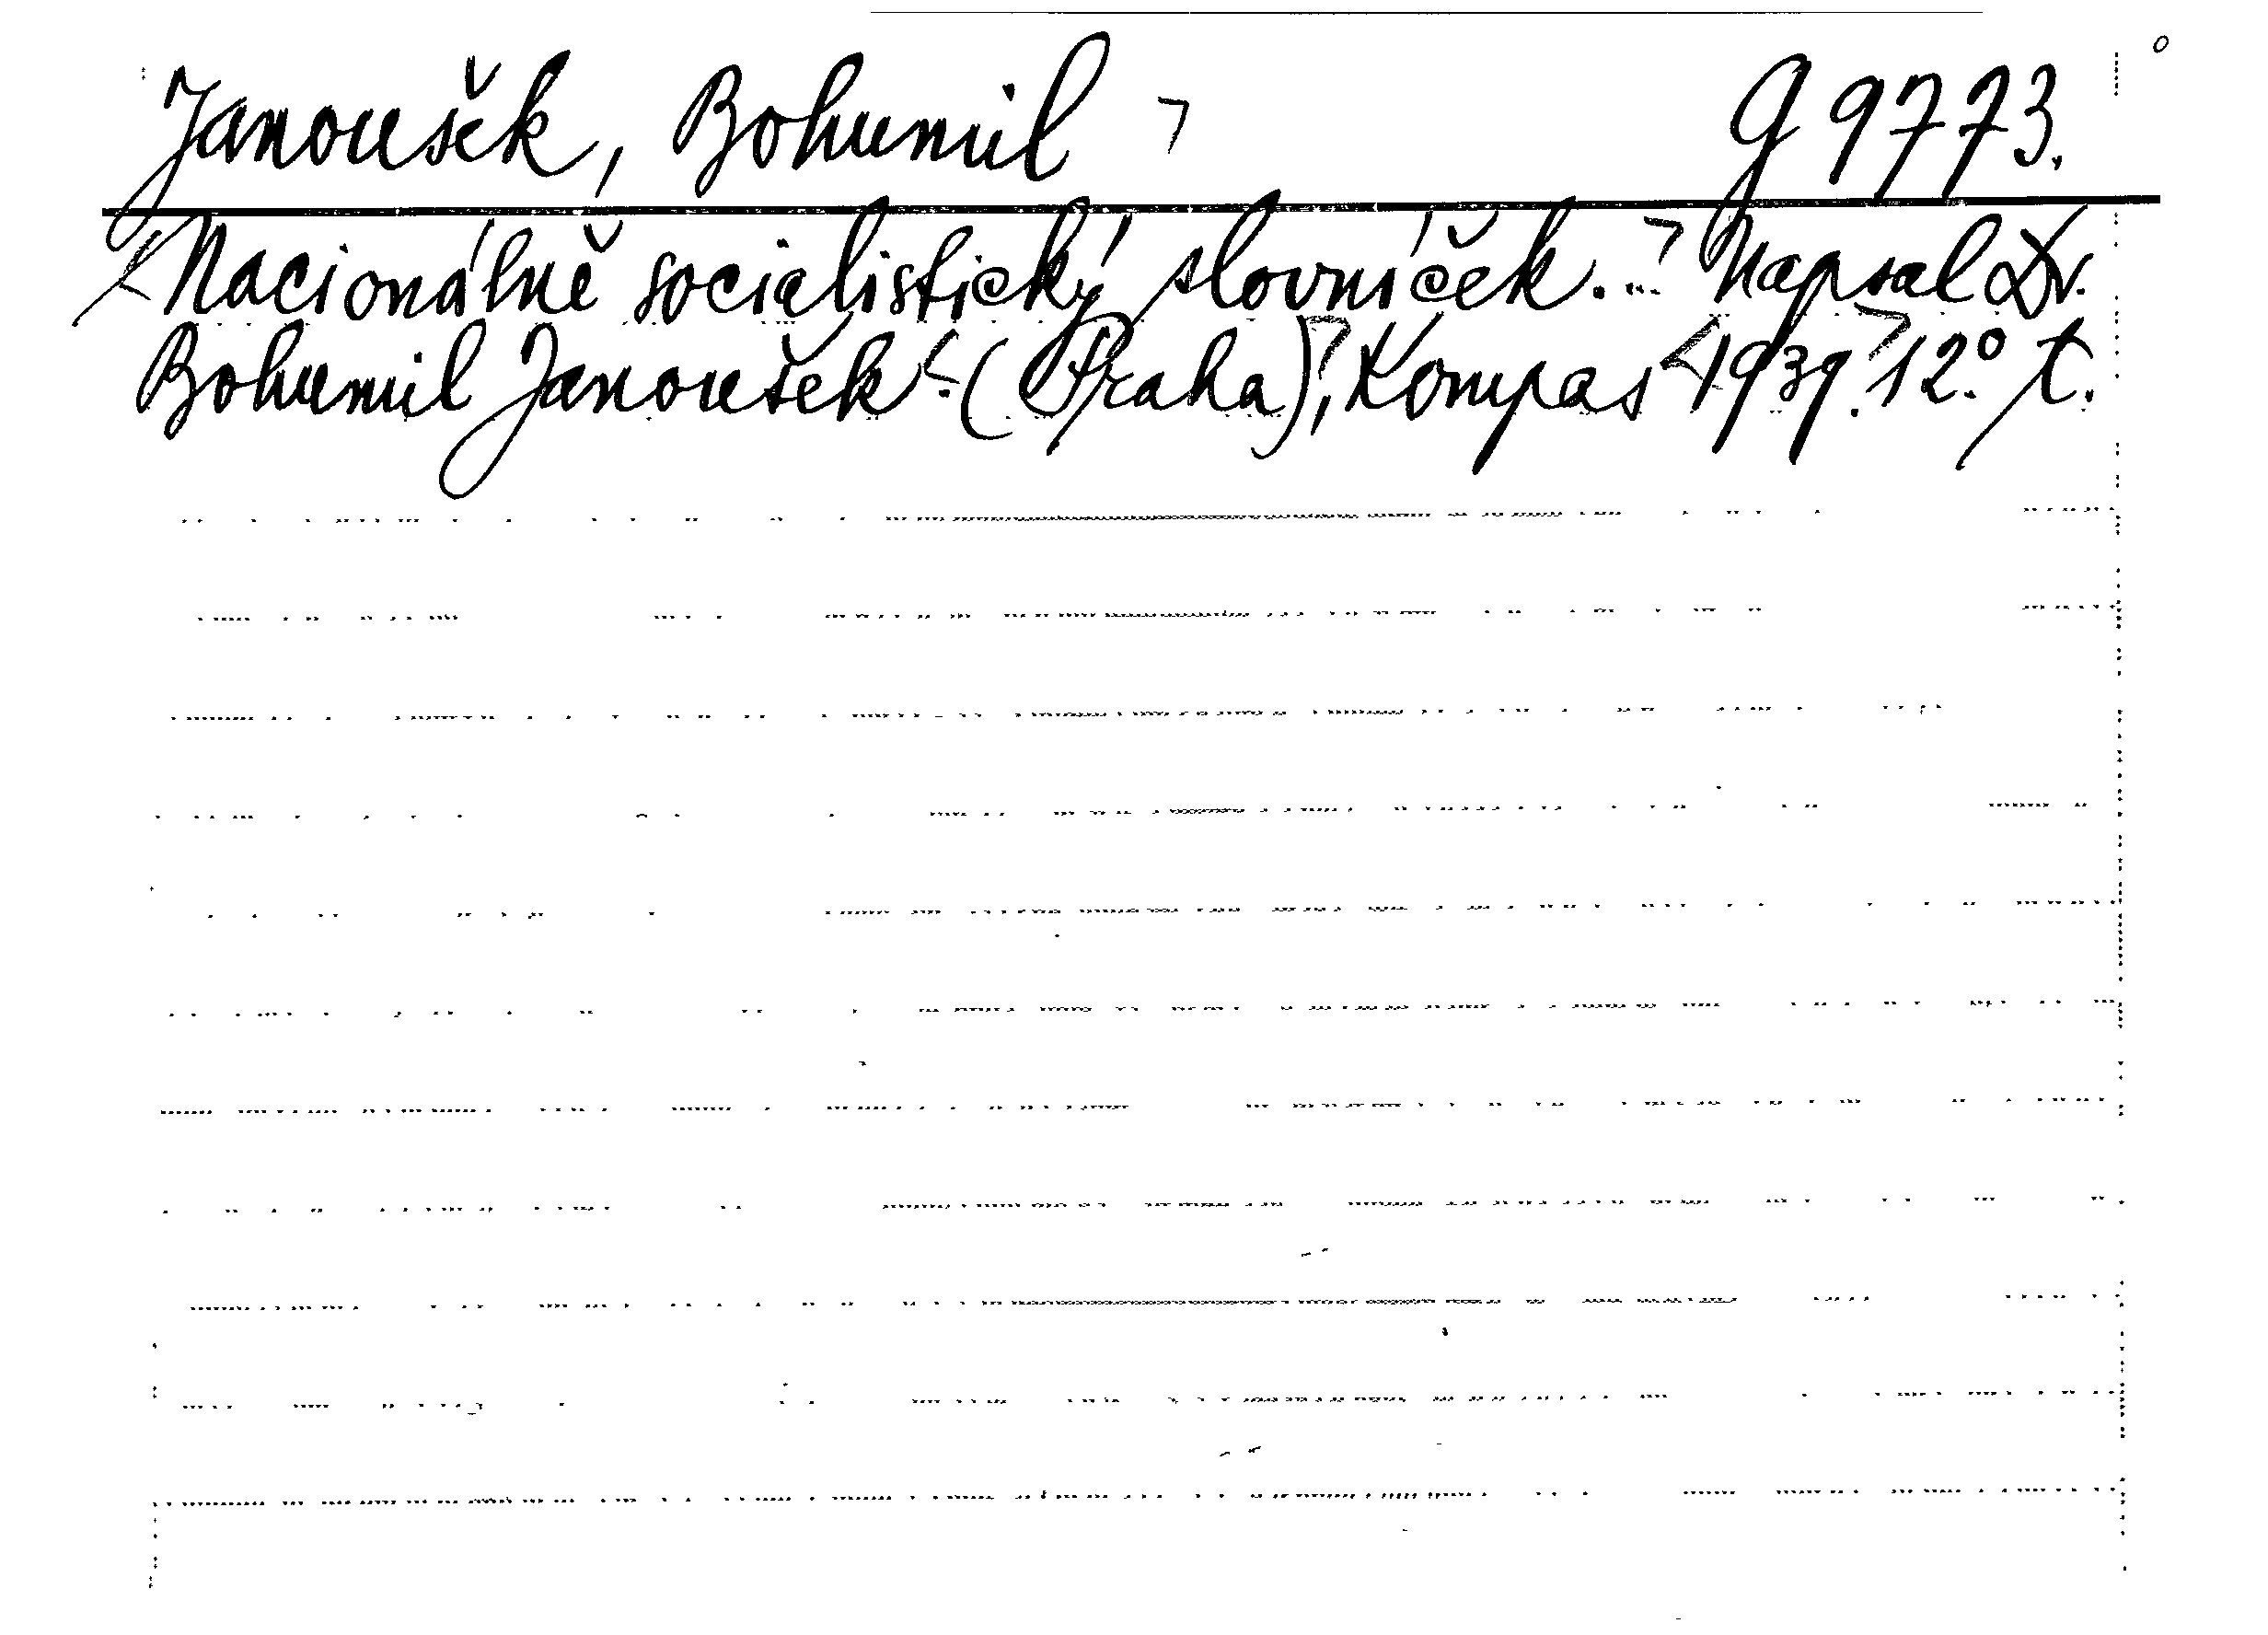 Janoušek, Bohumil G 9773.
Nacionálně socialistický slovníček... Napsal Dr.
Bohumil Janoušek. (Praha), Kompas 1939. 12° t.